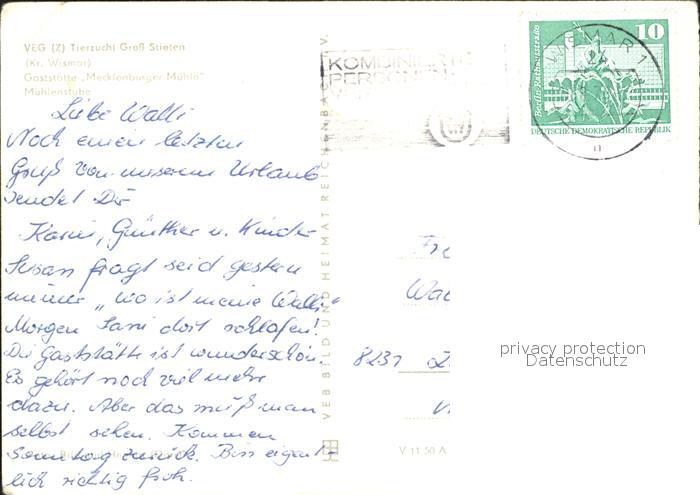 VEG (Z) Tierzucht Groß Stieten
(Kr. Wismar)
Gaststätte „Mecklenburger Mühle"
Mühlenstube
Liebe Walli
Noch einen letzten
Gruß von unserem Urlaub
sendet Dir
Karin, Günther u. Kinder
Susan fragt seid gestern
immer „wo ist meine Walli"
Morgen Sani dort schlafen!
Die Gaststätte ist wunderschön.
Es gehört noch viel mehr
dazu. Aber das muß man
selbst sehen. Kommen
Sonntag zurück. Bin eigent-
lich richtig froh.
VEB BILD UND HEIMAT REICHENBACH I. V.
KOMBINIERTE
PERSONEN
WISMAR 1
Berlin, Rathausstraße
10
DEUTSCHE DEMOKRATISCHE REPUBLIK
8231
privacy protection
Datenschutz
V 11 50 A